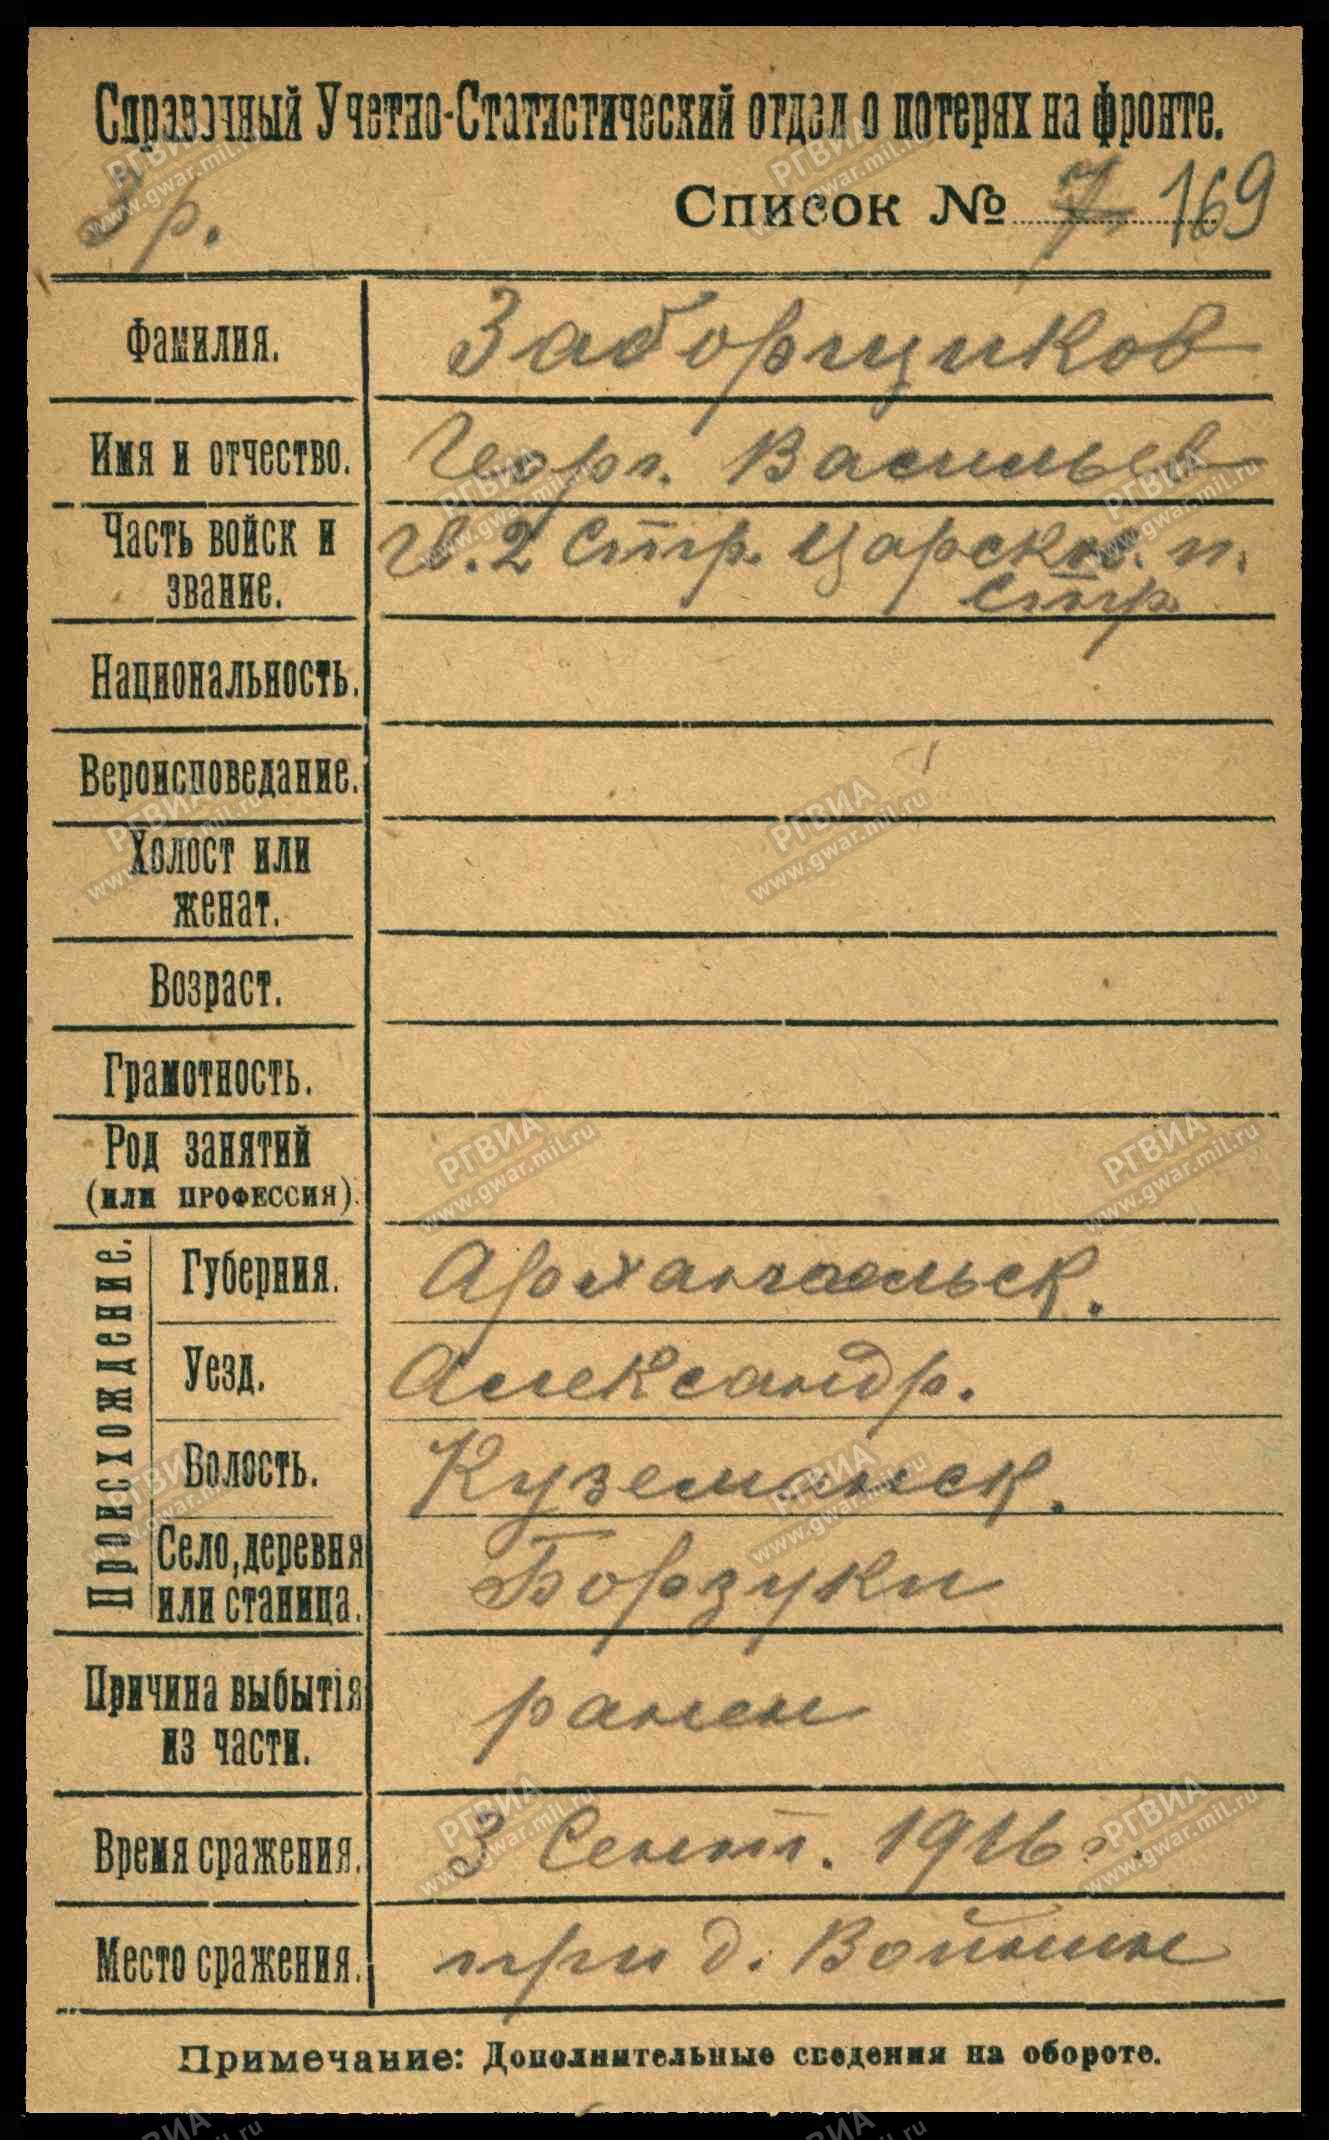 Справочный Учетно-Статистический отдел о потерях на фронте.
3 р.
Список № 7 169
Фамилия. Заборщиков
Имя и отчество. Георг. Васильев
Часть войск и звание. Гв. 2 Стр. Царскос. п.
Стр.
Национальность.
Вероисповедание.
Холост или
женат.
Возраст.
Грамотность.
Род занятий
(или профессия).
Происхождение.
Губерния. Архангельск.
Уезд. Александр.
Волость. Куземанск.
Село, деревня
или станица. Борзуки
Причина выбытія
из части. ранен
Время сражения. 3 Сент. 1916 г.
Место сражения. при д. Войнин
Примечание: Дополнительные сведения на обороте.
РГВИА
www.gwar.mil.ru